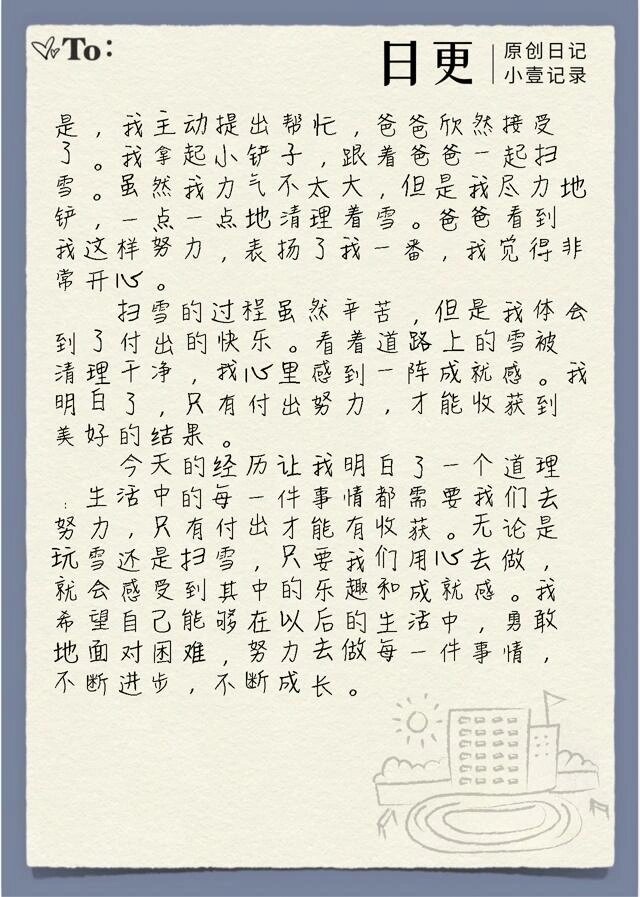 To:
日更
原创日记
小壹记录
是，我主动提出帮忙，爸爸欣然接受
了。我拿起小铲子，跟着爸爸一起扫
雪。虽然我力气不太大，但是我尽力地
铲，一点一点地清理着雪。爸爸看到
我这样努力，表扬了我一番，我觉得非
常开心。
扫雪的过程虽然辛苦，但是我体会
到了付出的快乐。看着道路上的雪被
清理干净，我心里感到一阵成就感。我
明白了，只有付出努力，才能收获到
美好的结果。
今天的经历让我明白了一个道理
：生活中的每一件事情都需要我们去
努力，只有付出才能有收获。无论是
玩雪还是扫雪，只要我们用心去做，
就会感受到其中的乐趣和成就感。我
希望自己能够在以后的生活中，勇敢
地面对困难，努力去做每一件事情，
不断进步，不断成长。